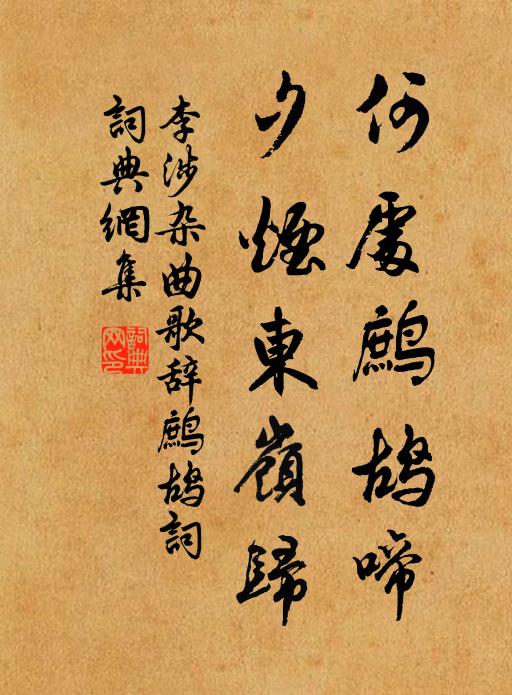 何處鷓鴣啼
夕煙東嶺歸
李涉杂曲歌辞鷓鴣詞
詞典網集
詞典网印